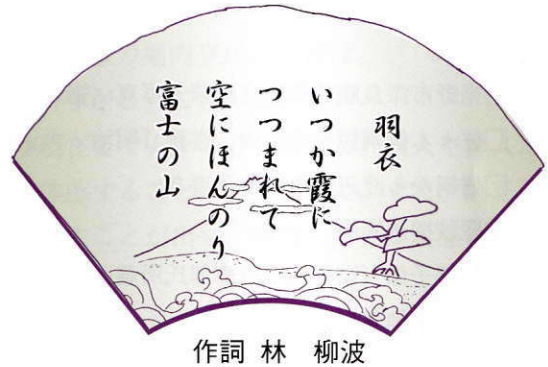 羽衣
いつか霞に
つつまれて
空にほんのり
富士の山
作詞 林 柳波